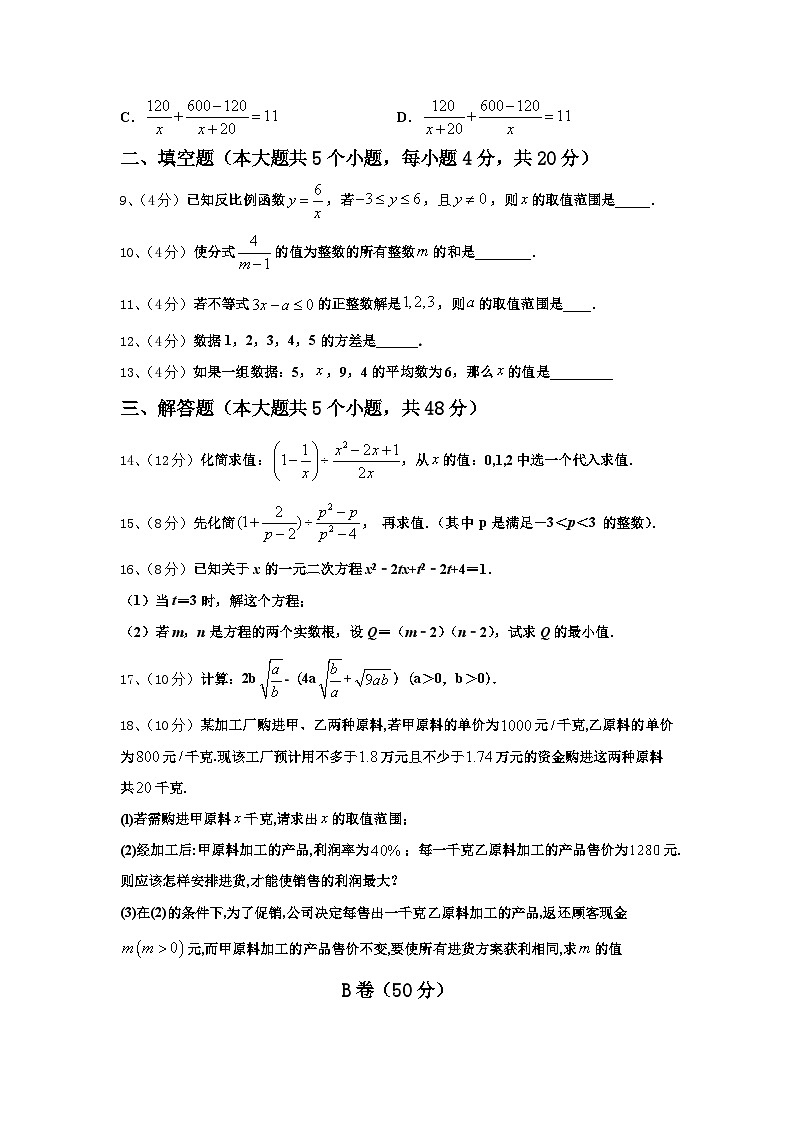 C. 120/x + (600−120)/(x+20) = 11 D. 120/(x+20) + (600−120)/x = 11
二、填空题（本大题共5个小题，每小题4分，共20分）
9、（4分）已知反比例函数 y = 6/x，若−3 ≤ y ≤ 6，且 y ≠ 0，则x的取值范围是_____．
10、（4分）使分式 4/(m−1) 的值为整数的所有整数m的和是________．
11、（4分）若不等式3x − a ≤ 0的正整数解是1,2,3，则a的取值范围是____．
12、（4分）数据1，2，3，4，5的方差是______．
13、（4分）如果一组数据：5，x，9，4的平均数为6，那么x的值是_________
三、解答题（本大题共5个小题，共48分）
14、（12分）化简求值：(1 − 1/x) ÷ (x² − 2x + 1)/(2x)，从x的值：0,1,2中选一个代入求值．
15、（8分）先化简(1+ 2/(p−2)) ÷ (p² − p)/(p² − 4)， 再求值．（其中p是满足－3＜p＜3 的整数）．
16、（8分）已知关于x的一元二次方程x²﹣2tx+t²﹣2t+4＝1．
（1）当t＝3时，解这个方程；
（2）若m，n是方程的两个实数根，设Q＝（m﹣2）（n﹣2），试求Q的最小值．
17、（10分）计算：2b√(a/b)﹣(4a√(b/a) + √(9ab)) (a＞0，b＞0)．
18、（10分）某加工厂购进甲、乙两种原料,若甲原料的单价为1000元/千克,乙原料的单价
为800元/千克.现该工厂预计用不多于1.8万元且不少于1.74万元的资金购进这两种原料
共20千克.
(l)若需购进甲原料x千克,请求出x的取值范围;
(2)经加工后:甲原料加工的产品,利润率为40%；每一千克乙原料加工的产品售价为1280元.
则应该怎样安排进货,才能使销售的利润最大?
(3)在(2)的条件下,为了促销,公司决定每售出一千克乙原料加工的产品,返还顾客现金
m(m > 0)元,而甲原料加工的产品售价不变,要使所有进货方案获利相同,求m的值
B卷（50分）